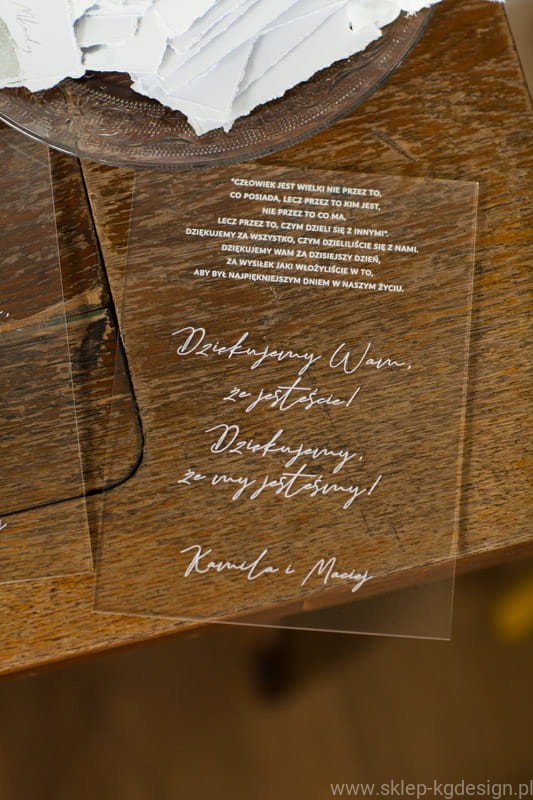 Młody
"CZŁOWIEK JEST WIELKI NIE PRZEZ TO,
CO POSIADA, LECZ PRZEZ TO KIM JEST,
NIE PRZEZ TO CO MA,
LECZ PRZEZ TO, CZYM DZIELI SIĘ Z INNYMI".
DZIĘKUJEMY ZA WSZYSTKO, CZYM DZIELILIŚCIE SIĘ Z NAMI.
DZIĘKUJEMY WAM ZA DZISIEJSZY DZIEŃ,
ZA WYSIŁEK JAKI WŁOŻYLIŚCIE W TO,
ABY BYŁ NAJPIĘKNIEJSZYM DNIEM W NASZYM ŻYCIU.
Dziękujemy Wam,
że jesteście!
Dziękujemy,
że my jesteśmy!
Kamila i Maciej
www.sklep-kgdesign.pl